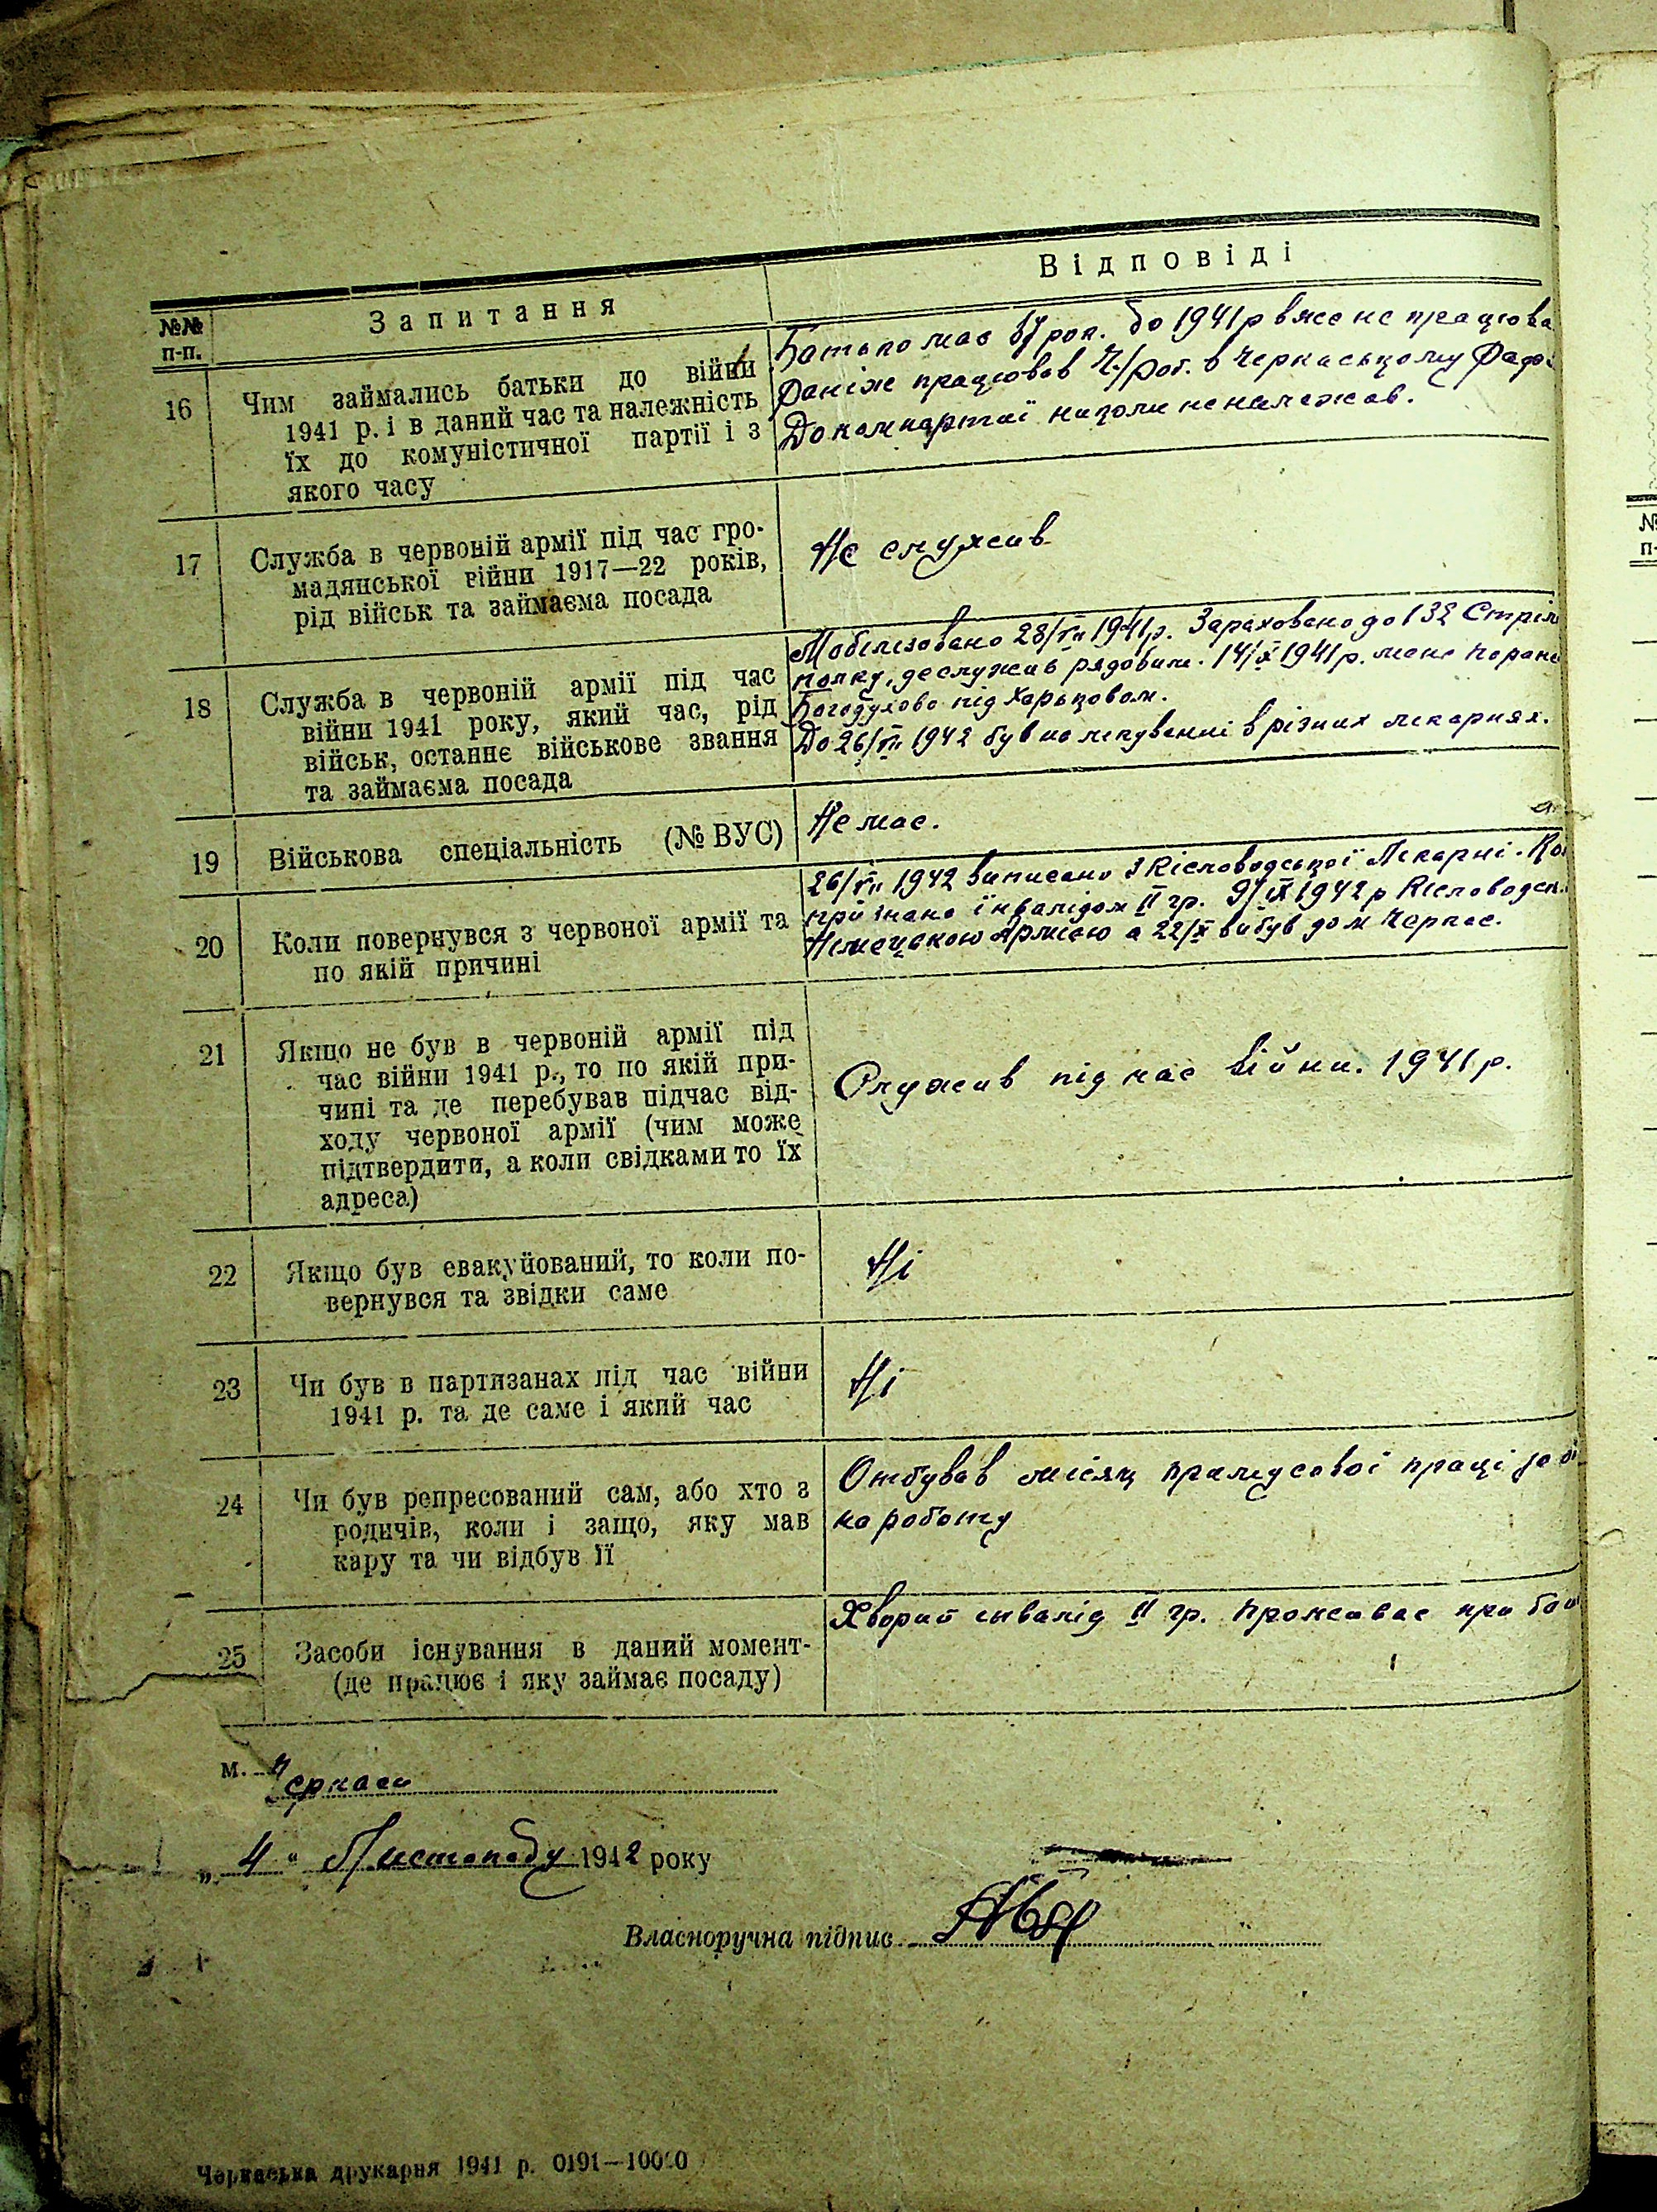 №№ п-п.
Запитання
Відповіді
16
Чим займались батьки до війни
1941 р. і в даний час та належність
їх до комуністичної партії і з
якого часу
Батько має 67 рок. до 1941 р вже не працюва
Раніше працював Ч/роб. в Черкаському
До компартії ніколи не належав.
17
Служба в червоній армії під час гро-
мадянської війни 1917—22 років,
рід військ та займаєма посада
Не служив
18
Служба в червоній армії під час
війни 1941 року, який час, рід
військ, останнє військове звання
та займаєма посада
Мобілізовано 28/VII 1941 р. Зараховано до 132 Стріл
полку, де служив рядовим. 14/X 1941 р. мене поране
Богодухово під Харьковом.
До 26/VII 1942 був на лікуванні в різних лікарнях.
19
Військова спеціальність (№ ВУС)
Не має.
20
Коли повернувся з червоної армії та
по якій причині
26/VII 1942 виписано з Кісловодської Лікарні.
признано інвалідом II гр. 9/IX 1942 р Кісловодськ
Німецькою Армією а 22/X вибув дом Черкас.
21
Якщо не був в червоній армії під
час війни 1941 р., то по якій при-
чині та де перебував підчас від-
ходу червоної армії (чим може
підтвердити, а коли свідками то їх
адреса)
Служив під час війни. 1941 р.
22
Якщо був евакуйований, то коли по-
вернувся та звідки саме
Ні
23
Чи був в партизанах під час війни
1941 р. та де саме і який час
Ні
24
Чи був репресований сам, або хто з
родичів, коли і защо, яку мав
кару та чи відбув її
Отбував місяц примусової праці за
на роботу
25
Засоби існування в даний момент-
(де працює і яку займає посаду)
Хворий інвалід II гр. Проживає при
м. Черкаси
„ 4 " Листопаду 1942 року
Власноручна підпис
Черкаська друкарня 1941 р. 0191—10000